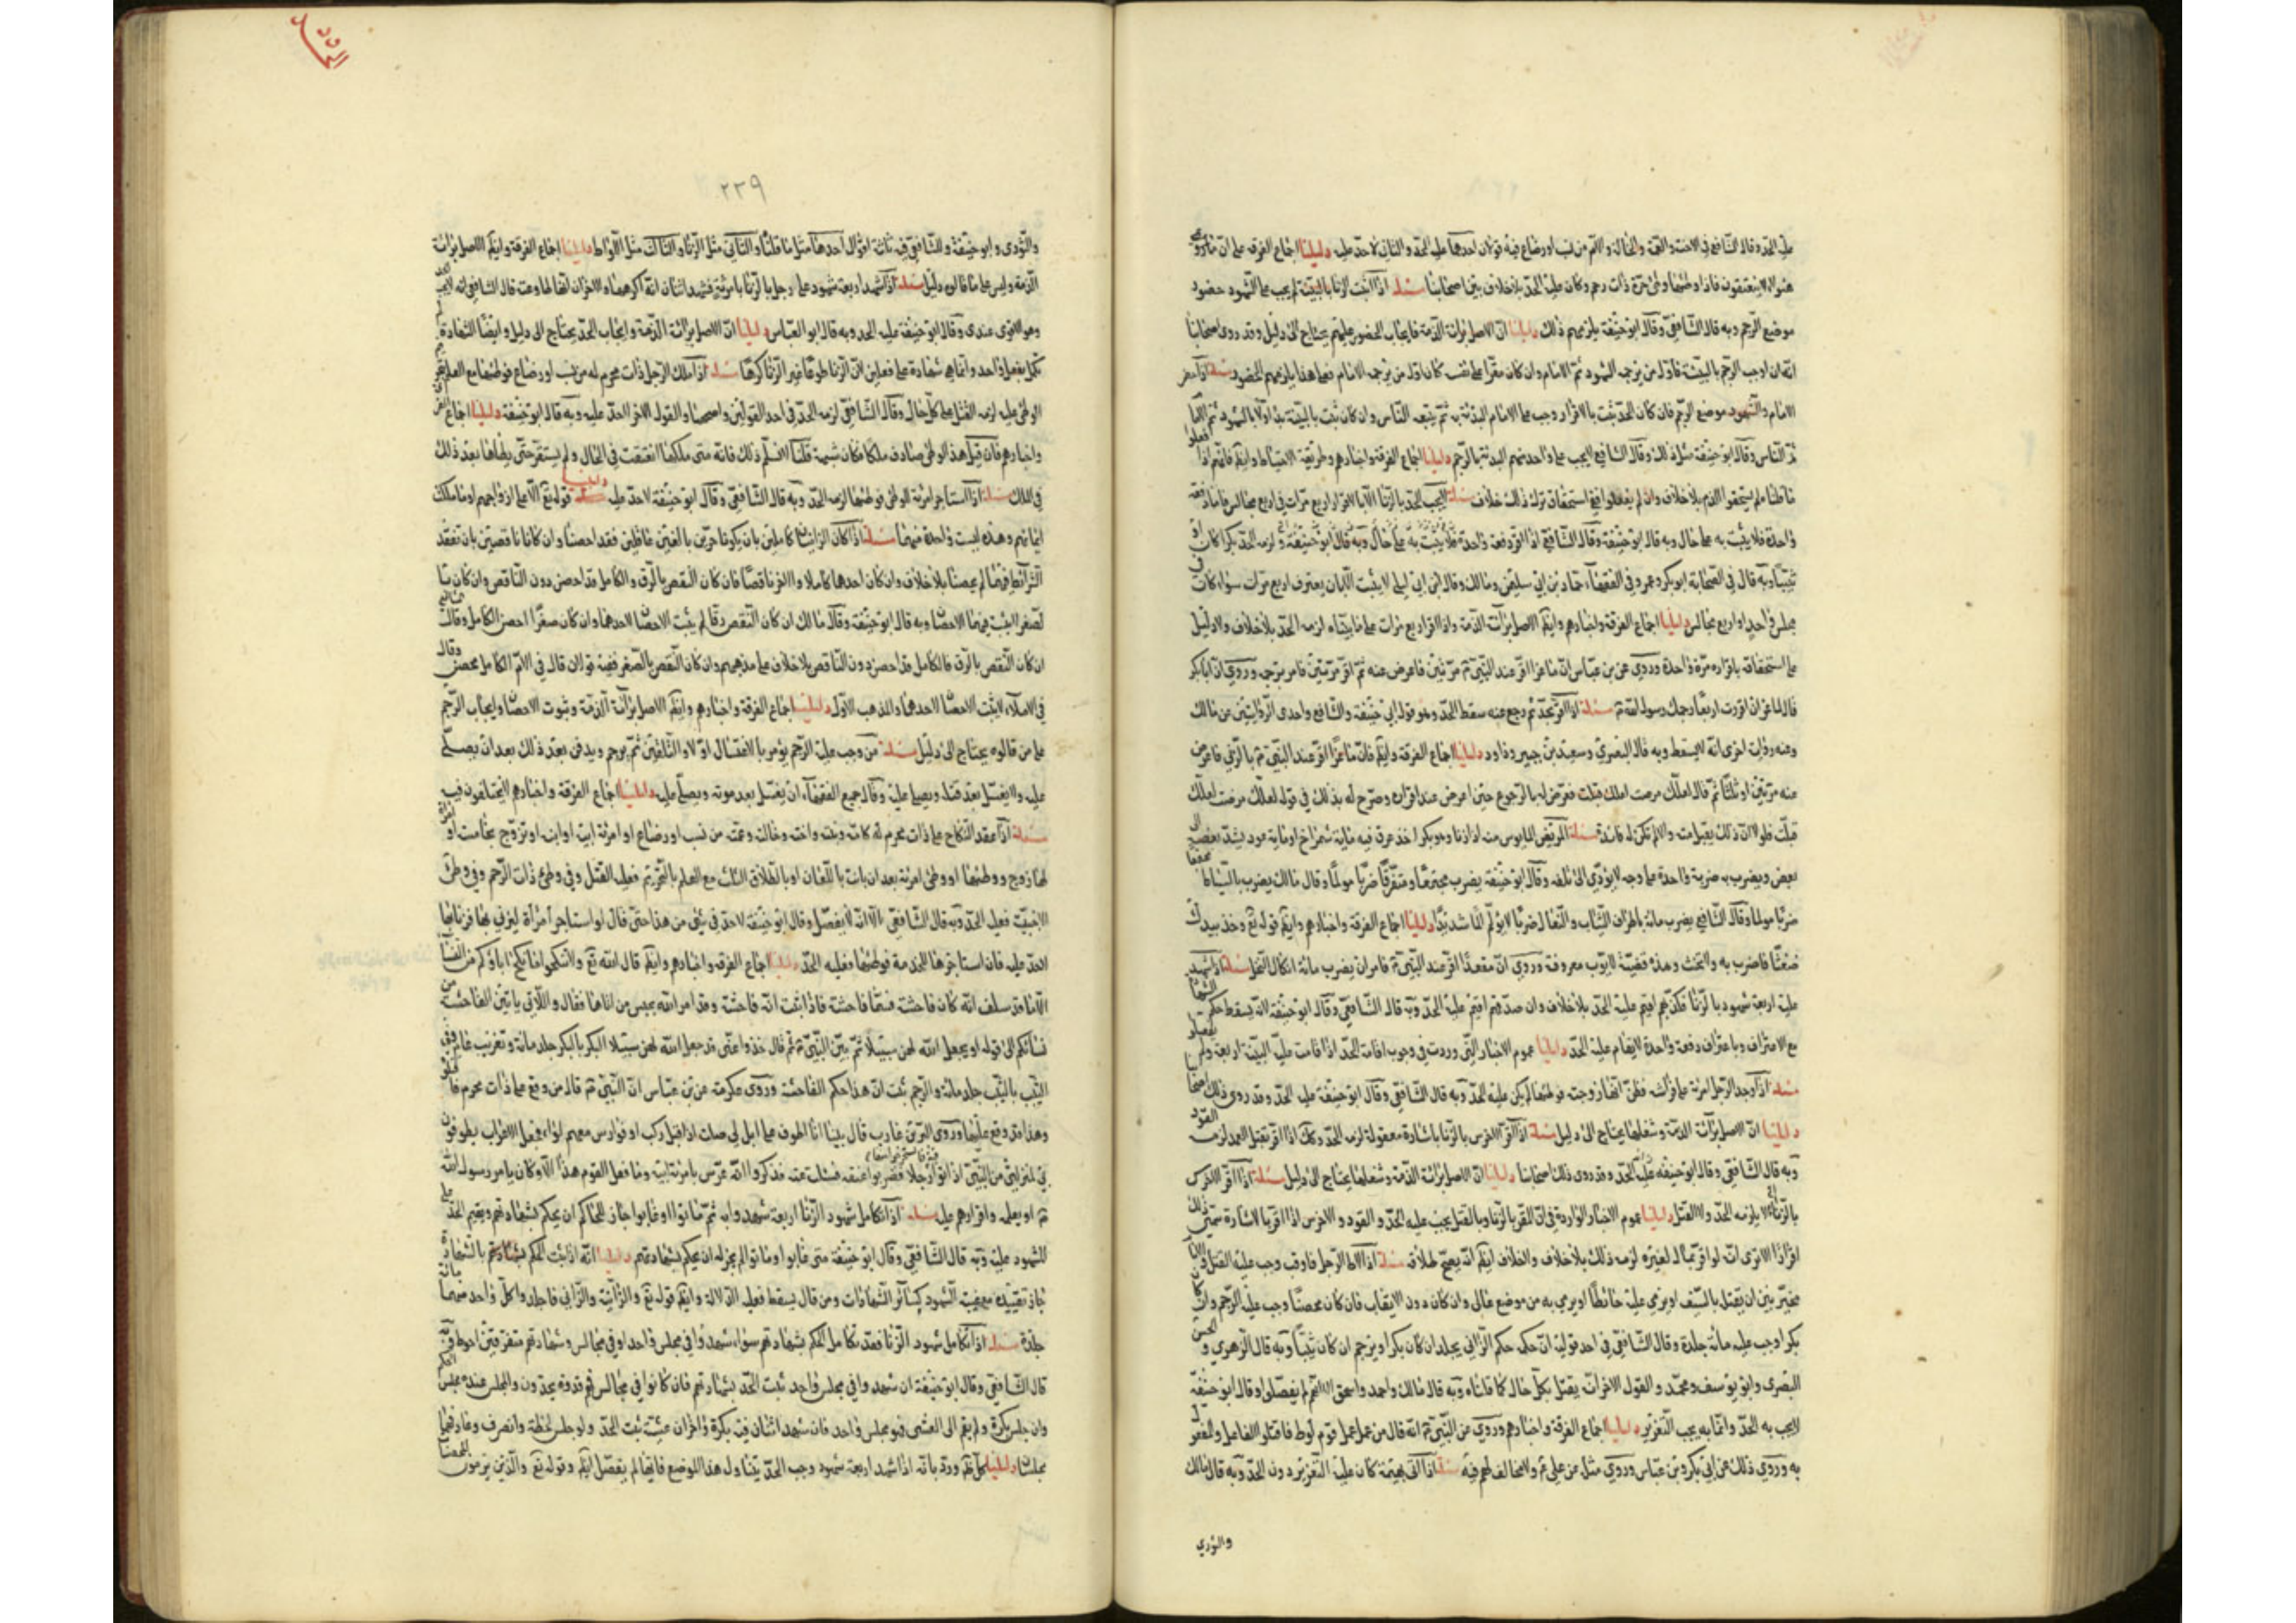 عليه الحدّ وقال الشافعي في الاخت والعمّة والخالة والامّ من نسب او رضاع فيه قولان احدهما عليه الحدّ والثاني لا حدّ عليه دليلنا اجماع الفرقة على انّ
هؤلاء ينعتقون فاذا وطئها وطئ حرّة ذات رحم وكان عليه الحدّ بلا خلاف بين اصحابنا مسئلة اذا ثبت الزنا بالبيّنة لم يجب على الشهود حضور
موضع الرجم وبه قال الشافعي وقال ابو حنيفة يلزمهم ذلك دليلنا انّ الاصل براءة الذمّة فايجاب الحضور عليهم يحتاج الى دليل وقد روى اصحابنا
انّه ان اوجب الرجم بالبيّنة فاوّل من يرجمه الشهود ثمّ الامام وان كان مقرّا على نفسه كان اوّل من يرجمه الامام فعلى هذا يلزمهم الحضور مسئلة اذا حضر
الامام والشهود موضع الرجم فان كان الحدّ ثبت بالاقرار وجب على الامام البدئة به ثمّ يتبعه الناس وان كان ثبت بالبيّنة بدا اولا بالشهود ثمّ
ثمّ الناس وقال ابو حنيفة مثل ذلك وقال الشافعي لا يجب على واحد منهم البدئة بالرجم دليلنا اجماع الفرقة واخبارهم وطريقة الاحتياط وايضا فانهم اذا
ما قلناه لم يستحقوا الذم بلا خلاف وان لم يفعلوا ففي استحقاق ترك ذلك خلاف مسئلة لا يجب الحدّ بالزنا الّا باقرار اربع مرّات في اربع مجالس فاما دفعة
واحدة فلا يثبت به على حال وبه قال ابو حنيفة وقال الشافعي اذا اقرّ دفعة واحدة لزمه الحدّ بكرا كان او
ثيّبا وبه قال في الصحابة ابو بكر وعمر وفي الفقهاء حماد بن ابي سليمان ومالك وقال ابن ابي ليلى لا يثبت الّا بان يعترف اربع مرّات سواء كان
مجلس واحد او اربع مجالس دليلنا اجماع الفرقة واخبارهم وايضا الاصل براءة الذمّة واذا اقرّ اربع مرّات على ما بيّناه لزمه الحدّ بلا خلاف ولا دليل
على استحقاقه باقراره مرّة واحدة وروى عن ابن عباس انّ ماعزا اقرّ عند النبيّ مرّتين فاعرض عنه ثمّ اقرّ مرّتين فامر برجمه وروي انّ ابا بكر
قال لماعز ان اقررت اربعا رجمك رسول الله مسئلة اذا اقرّ بحدّ ثمّ رجع عنه سقط الحدّ وهو قول ابي حنيفة والشافعي واحدى الروايتين عن مالك
وعنه رواية اخرى انّه لا يسقط وبه قال البصري وسعيد بن جبير وداود دليلنا اجماع الفرقة وايضا فانّ ماعزا اقرّ عند النبيّ بالزنى فاعرض
عنه مرّتين او ثلثا ثمّ قال لعلّك لمست لعلك قبلت فعرّض له بالرجوع حين اعرض عند اقراره وصرّح له بذلك في قوله لعلّك لمست لعلّك
قبلت فلولا انّ ذلك يقبل منه والّا لم تكن له فائدة مسئلة المريض المايوس منه اذا زنا وهو بكر اخذ عرق فيه ماية شمراخ او ماية عود يشد بعضه الى
بعض ويضرب به ضربة واحدة على وجه لا يؤدّي الى تلفه وقال ابو حنيفة يضرب مجتمعا ومتفرّقا ضربا مولما وقال مالك يضرب بالسياط
ضربا مولما وقال الشافعي يضرب مائة باطراف الثياب والنعال ضربا لا يؤلم الما شديدا دليلنا اجماع الفرقة واخبارهم وايضا قوله تع وخذ بيدك
ضغثا فاضرب به ولا تحنث وهذه قضيّة ايّوب معروفة وروي انّ مقعدا اقرّ عند النبيّ فامر ان يضرب مائة اثكال النخل مسئلة اذا شهد
عليه اربعة شهود بالزنا فكذّبهم اقيم عليه الحدّ بلا خلاف وان صدّقهم اقيم عليه الحدّ وبه قال الشافعي وقال ابو حنيفة انّه يسقط حكم الشهادة
مع الاعتراف وباعتراف دفعة واحدة لا يقام عليه الحدّ دليلنا عموم الاخبار التي وردت في وجوب اقامة الحدّ اذا قامت عليه البيّنة اربعة ولم
مسئلة اذا وجد الرجل امرئة على فراشه فظنّ انّها زوجته فوطئها لم يكن عليه الحدّ وبه قال الشافعي وقال ابو حنيفة عليه الحدّ وقد روى ذلك اصحابنا
دليلنا انّ الاصل براءة الذمّة وشغلها يحتاج الى دليل مسئلة اذا اقرّ الاخرس بالزنا باشارة معقولة لزمه الحدّ وكذلك اذا اقرّ بقتل العمد لزمه القود
وبه قال الشافعي وقال ابو حنيفة عليه الحدّ وقد روى ذلك اصحابنا دليلنا انّ الاصل براءة الذمّة وشغلها يحتاج الى دليل مسئلة اذا اقرّ الاخرس
بالزنا لا يلزمه الحدّ ولا القتل دليلنا عموم الاخبار الواردة في انّ المقرّ بالزنا وبالقتل يجب عليه الحدّ والقود والاخرس اذا اقرّ بالاشارة سمّي ذلك
اقرارا الا ترى انّه لو اقرّ بمال لغيره لزمه ذلك بلا خلاف ولا خلاف ايضا انّه يصحّ طلاقه مسئلة اذا لاط الرجل فاوقب وجب عليه القتل والامام
مخيّر بين ان يقتله بالسيف او يرمي عليه حائطا او يرمي به من موضع عال وان كان دون الايقاب فان كان محصنا وجب عليه الرجم وان كان
بكرا وجب عليه مائة جلدة وقال الشافعي في احد قوليه انّ حكمه حكم الزاني يجلد ان كان بكرا ويرجم ان كان ثيّبا وبه قال الزهري والحسن
البصري وابو يوسف ومحمّد والقول الاخر انّه يقتل بكلّ حال كما قلناه وبه قال مالك واحمد واسحق الّا انّهم لم يفصّلوا وقال ابو حنيفة
لا يجب به الحدّ وانّما به يجب التعزير دليلنا اجماع الفرقة واخبارهم وروي عن النبيّ انّه قال من عمل عمل قوم لوط فاقتلوا الفاعل والمفعول
به وروي ذلك عن ابي بكر وبن عباس وروي مثل عن علي ولا مخالف لهم فيه مسئلة اذا اتى بهيمة كان عليه التعزير دون الحدّ وبه قال مالك
والثوري
٢٣٩
والثوري وابو حنيفة وللشافعي فيه ثلثة اقوال احدها مثل ما قلناه والثاني مثل الزنا والثالث مثل اللواط دليلنا اجماع الفرقة وايضا الاصل براءة
الذمّة وليس على ما قالوه دليل مسئلة اذا شهد اربعة شهود على رجل بالزنا بامرئة فشهد اثنان انّه اكرهها والاخران انّها طاوعته قال الشافعي انّه لا يجب
وهو الاقوى عندي وقال ابو حنيفة عليه الحد وبه قال ابو العباس دليلنا انّ الاصل براءة الذمّة وايجاب الحدّ يحتاج الى دليل وايضا الشهادة لم
تكمل بفعل واحد وانّما هي شهادة على فعلين لانّ الزنا طوعا غير الزنا كرها مسئلة اذا ملك الرجل ذات محرم له من نسب او رضاع فوطئها مع العلم
الوطئ عليه لزمه القتل على كلّ حال وقال الشافعي لزمه الحدّ في احد القولين واصحّهما والقول الاخر لا حدّ عليه وبه قال ابو حنيفة دليلنا اجماع
واخبارهم فان قيل هذا لوطئ صادف ملكا فكان شبهة قلنا لا نسلّم ذلك فانّه متى ملكها انعتقت في الحال ولم يستقرّ حتّى يطاها بعد ذلك
في الملك مسئلة اذا استاجر امرئة للوطئ فوطئها لزمه الحدّ وبه قال الشافعي وقال ابو حنيفة لا حدّ عليه دليلنا قوله تع الّا على ازواجهم او ما ملكت
ايمانهم وهذه ليست واحدة منهما مسئلة اذا كان الزانيان كاملين بان يكونا حرّين بالغين عاقلين فقد احصنا وان كانا ناقصين بان تفقد
الشرائط فيهما لم يحصنا بلا خلاف وان كان احدهما كاملا والاخر ناقصا فان كان النقص بالرّق فالكامل قد احصن دون الناقص وان كان
لصغر لم يثبت فيهما الاحصان وبه قال ابو حنيفة وقال مالك ان كان النقص رقّا لم يثبت الاحصان لاحدهما وان كان صغرا احصن الكامل وقال الشافعي
ان كان النقص بالرّق فالكامل قد احصن دون الناقص بلا خلاف على مذهبهم وان كان النقص بالصّغر ففيه قولان قال في الامّ الكامل محصن وقال
في الاملاء لا يثبت الاحصان لاحدهما والمذهب الاوّل دليلنا اجماع الفرقة واخبارهم وايضا الاصل براءة الذمّة وثبوت الاحصان وايجاب الرّجم
على من قالوه يحتاج الى دليل مسئلة من وجب عليه الرّجم يؤمر بالاغتسال اوّلا والتكفين ثمّ يرجم ويدفن بعد ذلك بعد ان يصلّى
عليه ولا يغسّل بعد قتله ويصلّى عليه وقال جميع الفقهاء انّه يغسّل بعد موته ويصلّى عليه دليلنا اجماع الفرقة واخبارهم لا يختلفون فيه
مسئلة اذا عقد النكاح على ذات محرم له كامّه وبنته واخته وخالته وعمّته من نسب او رضاع او امرئة ابيه او ابنه او تزوّج بخامسة او امرأة
لها زوج ووطئها او وطئ امرئة بعد ان بانت باللّعان او بالطّلاق الثلث مع العلم بالتحريم فعليه القتل وفي وطئ ذات الرّحم وفي وطئ
الاجنبيّة فعليه الحدّ وبه قال الشافعي الّا انّه لا يفصّل وقال ابو حنيفة لا حدّ في شئ من هذا حتّى قال لو استاجر امرأة ليزني بها فزنى بها
الحدّ عليه فان استاجرها للخدمة فوطئها فعليه الحدّ دليلنا اجماع الفرقة واخبارهم وايضا قال الله تع ولا تنكحوا ما نكح اباؤكم من النساء
الّا ما قد سلف انّه كان فاحشة فسمّاها فاحشة فاذا ثبت انّه فاحشة وقد امر الله بحبس من اتاها فقال واللّاتي ياتين الفاحشة من
نسائكم الى قوله او يجعل الله لهن سبيلا ثمّ بيّن النبيّ ثمّ قال خذوا عنّي قد جعل الله لهن سبيلا البكر بالبكر جلد مائة وتغريب عام وفي
الثيّب بالثيّب جلد مائة والرجم ثبت انّ هذا حكم الفاحشة وروى عكرمة عن بن عباس انّ النبيّ قال من وقع على ذات محرم فاقتلوه
وهذا قد وقع عليها وروى البراء بن عازب قال بينا انا اطوف على ابل لي ضلّت اذ اقبل ركب او فوارس معهم لواء فجعل الاعراب يطوفون
بي لمنزلتي من النبيّ اذا اتوا رجلا فضربوا عنقه فسئلت عنه فذكروا انّه عرّس بامرئة ابيه وما فعل القوم هذا الّا وكان بامر رسول الله
او بعلمه واقرارهم عليه مسئلة اذا تكامل شهود الزنا اربعة شهدوا به ثمّ ماتوا او غابوا جاز للحاكم ان يحكم بشهادتهم ويقيم الحدّ على
المشهود عليه وبه قال الشافعي وقال ابو حنيفة متى غابوا او ماتوا لم يجز له ان يحكم بشهادتهم دليلنا انّه اذا ثبت الحكم بشهادتهم بالشهادة
جاز تنفيذه مع غيبة الشهود كسائر الشهادات ومن قال يسقط فعليه الدلالة وايضا قوله تع والزانية والزاني فاجلدوا كلّ واحد منهما مائة
جلدة مسئلة اذا تكامل شهود الزنا فقد تكامل الحكم بشهادتهم سواء شهدوا في مجلس واحد او في مجالس وشهادتهم متفرقين احوط وبه
قال الشافعي وقال ابو حنيفة ان شهدوا في مجلس واحد ثبت الحدّ بشهادتهم فان كانوا في مجالس فهم قذفة يحدّون والمجلس عنده مجلس الحكم
وان جلس بكرة ولم يقم الى العشي فهو مجلس واحد فان شهد اثنان فيه بكرة واخران عشيّة ثبت الحدّ ولو جلس لحظة وانصرف وعاد فهما
مجلسان دليلنا كلّ خبر ورد بانّه اذا شهد اربعة شهود وجب الحدّ يتناول هذا الموضع فانّها لم يفصّل ايضا وقوله تع والّذين يرمون المحصنات